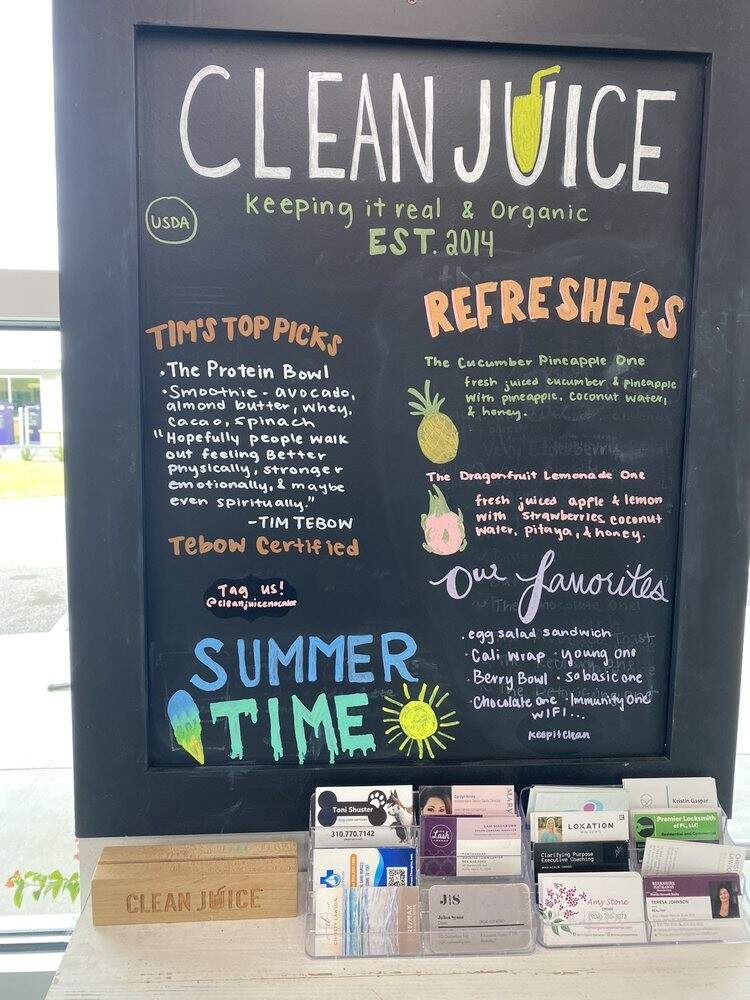 CLEAN JUICE
Keeping it real & Organic
USDA
EST. 2014
TIM'S TOP PICKS
• The Protein Bowl
• Smoothie - avocado,
almond butter, whey,
cacao, spinach
"Hopefully people walk
out feeling Better
physically, stronger
emotionally, & maybe
even spiritually."
-TIM TEBOW
Tebow Certified
Tag us!
@cleanjuicenocatee
SUMMER
TIME
REFRESHERS
The Cucumber Pineapple One
fresh juiced cucumber & pineapple
with pineapple, coconut water,
& honey.
The Dragonfruit Lemonade One
fresh juiced apple & lemon
with strawberries, coconut
water, pitaya, & honey.
Our favorites
• egg salad sandwich
• Cali Wrap • young one
• Berry Bowl • so basic one
• Chocolate one • Immunity One
WIFI...
keepitclean
CLEAN JUICE
Toni Shuster
dog care services
310.770.7142
MARY
Lash
LOKATION
REAL ESTATE
Kristin Gaspar
Premier Locksmith
of FL, LLC
Residential and Commercial
Clarifying Purpose
Executive Coaching
RE/MAX
JHS
Amy Stone
BERKSHIRE
HATHAWAY
TERESA JOHNSON
REALTOR